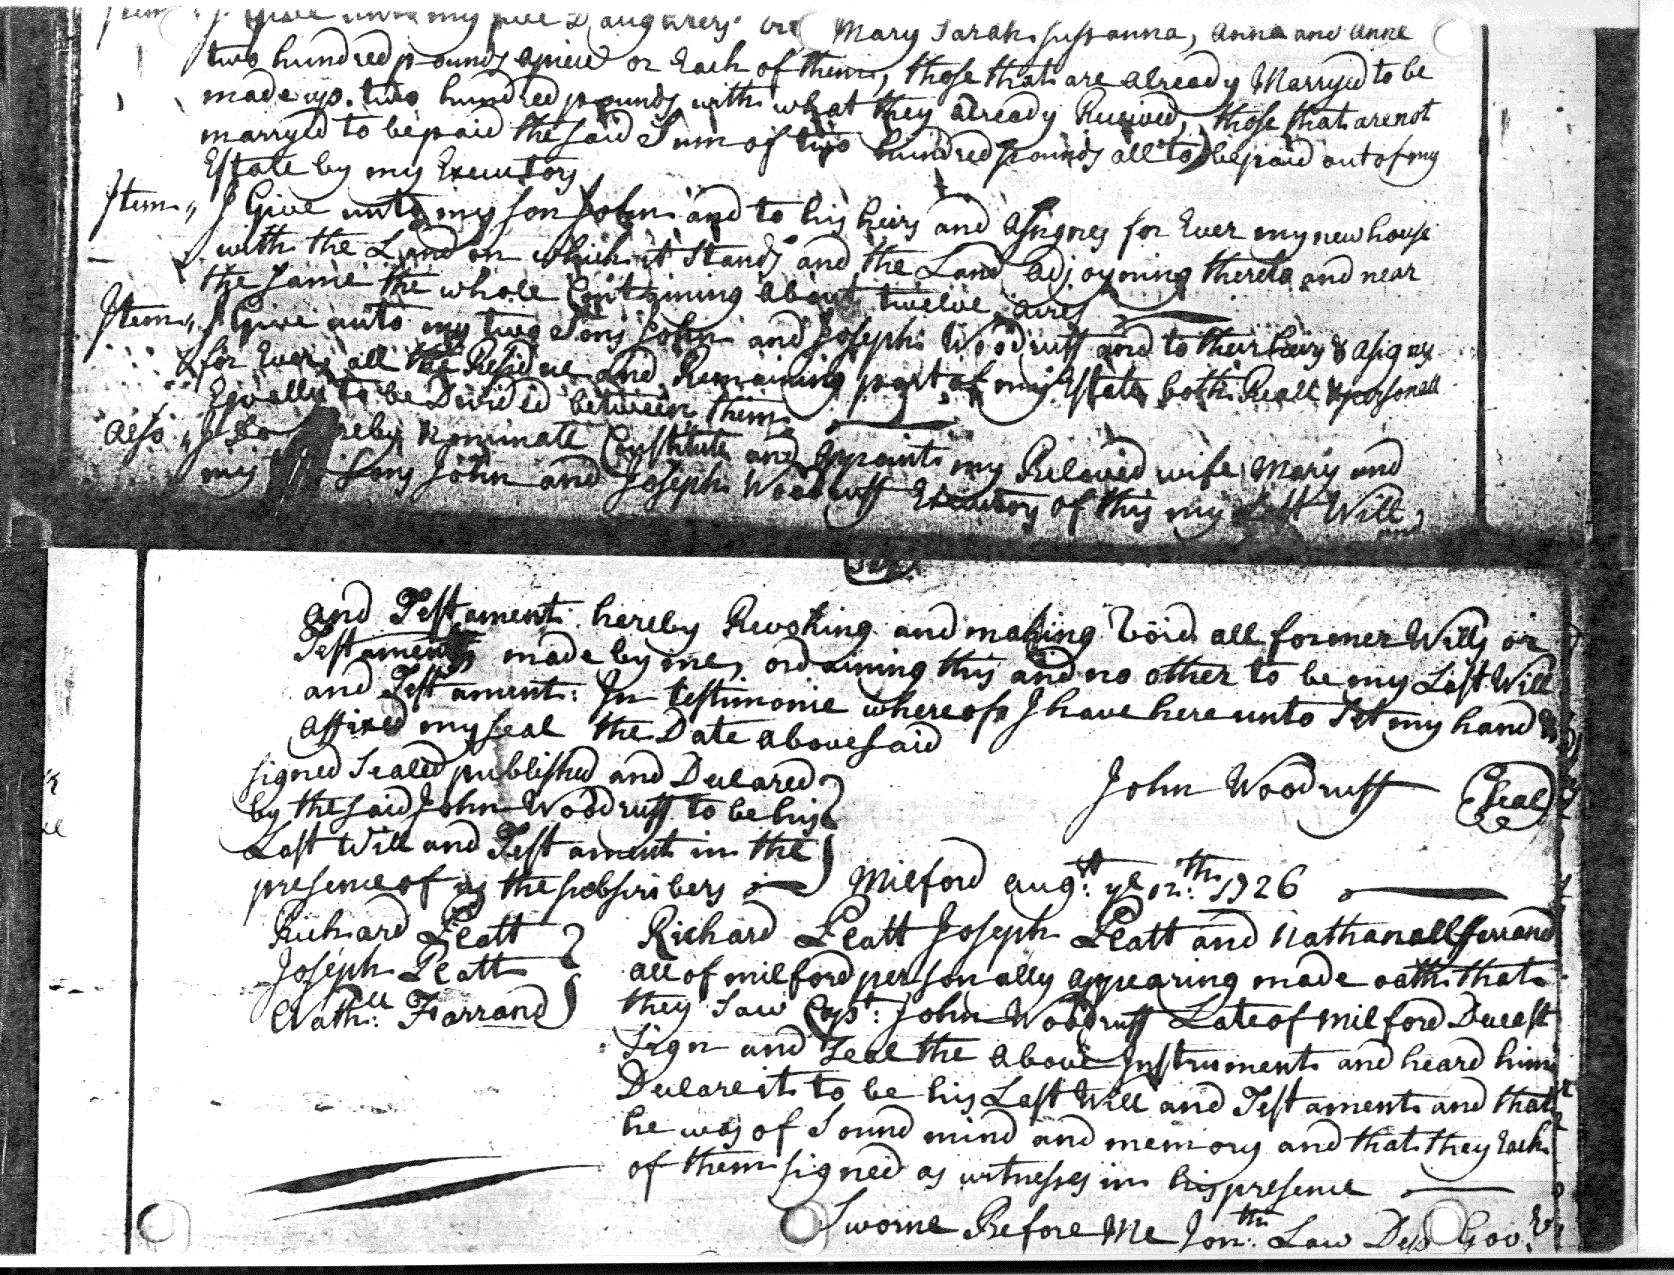 I Give unto my five Daughters viz Mary Sarah Sussanna, Anna and Anne
two hundred pounds apiece or Each of them, those that are already Marryed to be
made up two hundred pounds with what they already Received, those that are not
marryed to be paid the said Sum of two hundred pounds all to be paid out of my
Estate by my Executors
Item,, I Give unto my son John and to his heirs and assignes for Ever my new house
with the Land on which it Stands and the Land adjoyning thereto and near
the same the whole Containing about twelve acres
Item,, I Give unto my two Sons John and Joseph Woodruff and to their heirs & asignes
for Ever, all the Residue and Remaining part of my Estate both Reall & personall
Equally to be Divided between them
also,, I Do hereby Nominate Constitute and Appoint my Beloved wife Mary and
my Sons John and Joseph Woodruff Executors of this my Last Will
and
and Testament hereby Revoking and making Void all former Wills or
Testaments made by me, ordaining this and no other to be my Last Will
and Testament: In testimonie whereof I have hereunto Set my hand &
affixed my seal the Date abovesaid
signed Sealed published and Declared
by the said John Woodruff to be his
Last Will and Testament in the
presence of us the subscribers
John Woodruff Seal
Milford augst: ye 12th: 1726
Richard Platt
Joseph Platt
Nathll: Farrand
Richard Platt Joseph Platt and Nathanall ffarrand
all of milford personally appearing made oath that
they Saw Capt: John Woodruff Late of milford Deceast
Sign and Seal the above Instrument and heard him
Declare it to be his Last Will and Testament and that
he was of Sound mind and memory and that they Each
of them signed as witnesses in his presence
Sworne Before Me Jonth: Law Dep Govr.